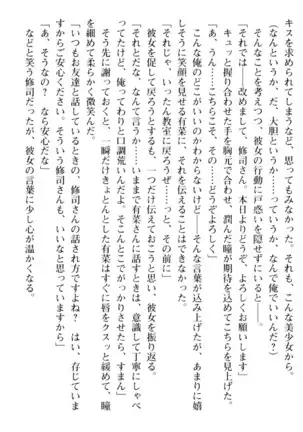 キスを求められてしまうなど、思ってもみなかった。それも、こんな美少女から。
（なんというか……だ、大胆というか……っていうか、なんで俺でいいんだ？）
そんなことを考えつつ、彼女の行動に戸惑いを隠せずにいると――。
「それでは――改めまして、修司さん。本日よりどうぞ、よろしくお願いします」
キュッと握り合わせた手を胸元で合わせ、潤んだ瞳が期待を込めてこちらを見上げた。
「あ、うん……こちらこそ、その……どうぞよろしく」
こんな俺のどこがいいのかわからないけど――そんな言葉が込み上げたが、あまりに嬉
そうに笑顔を見せている有菜に、それを伝えることはできなかった。
「それじゃ、いったん教室に戻ろうぜ……っと、その前に」
彼女を促して戻ろうとするも、一つだけ伝えておこうと思い、彼女を振り返る。
「それとだな、なんて言うか……いままで有菜さんに話すときは、意識して丁寧にしゃべ
ってたけど、俺ってわりと口調荒いんだよ。そこんとこでがっかりさせたら、すまん」
そう先に謝っておくと、一瞬だけきょとんとした有菜はすぐに唇をクスッと緩めて、瞳
を細めて柔らかく微笑んだ。
「いつもお友達と話しているときの、修司さんの話され方ですよね？　はい、存じていま
すからご安心ください。そういう修司さんも、いいなと思っていますから」
「あ、そうなの？　なら安心だな」
などと笑う修司だったが、彼女の言葉に少し心が温かくなる。